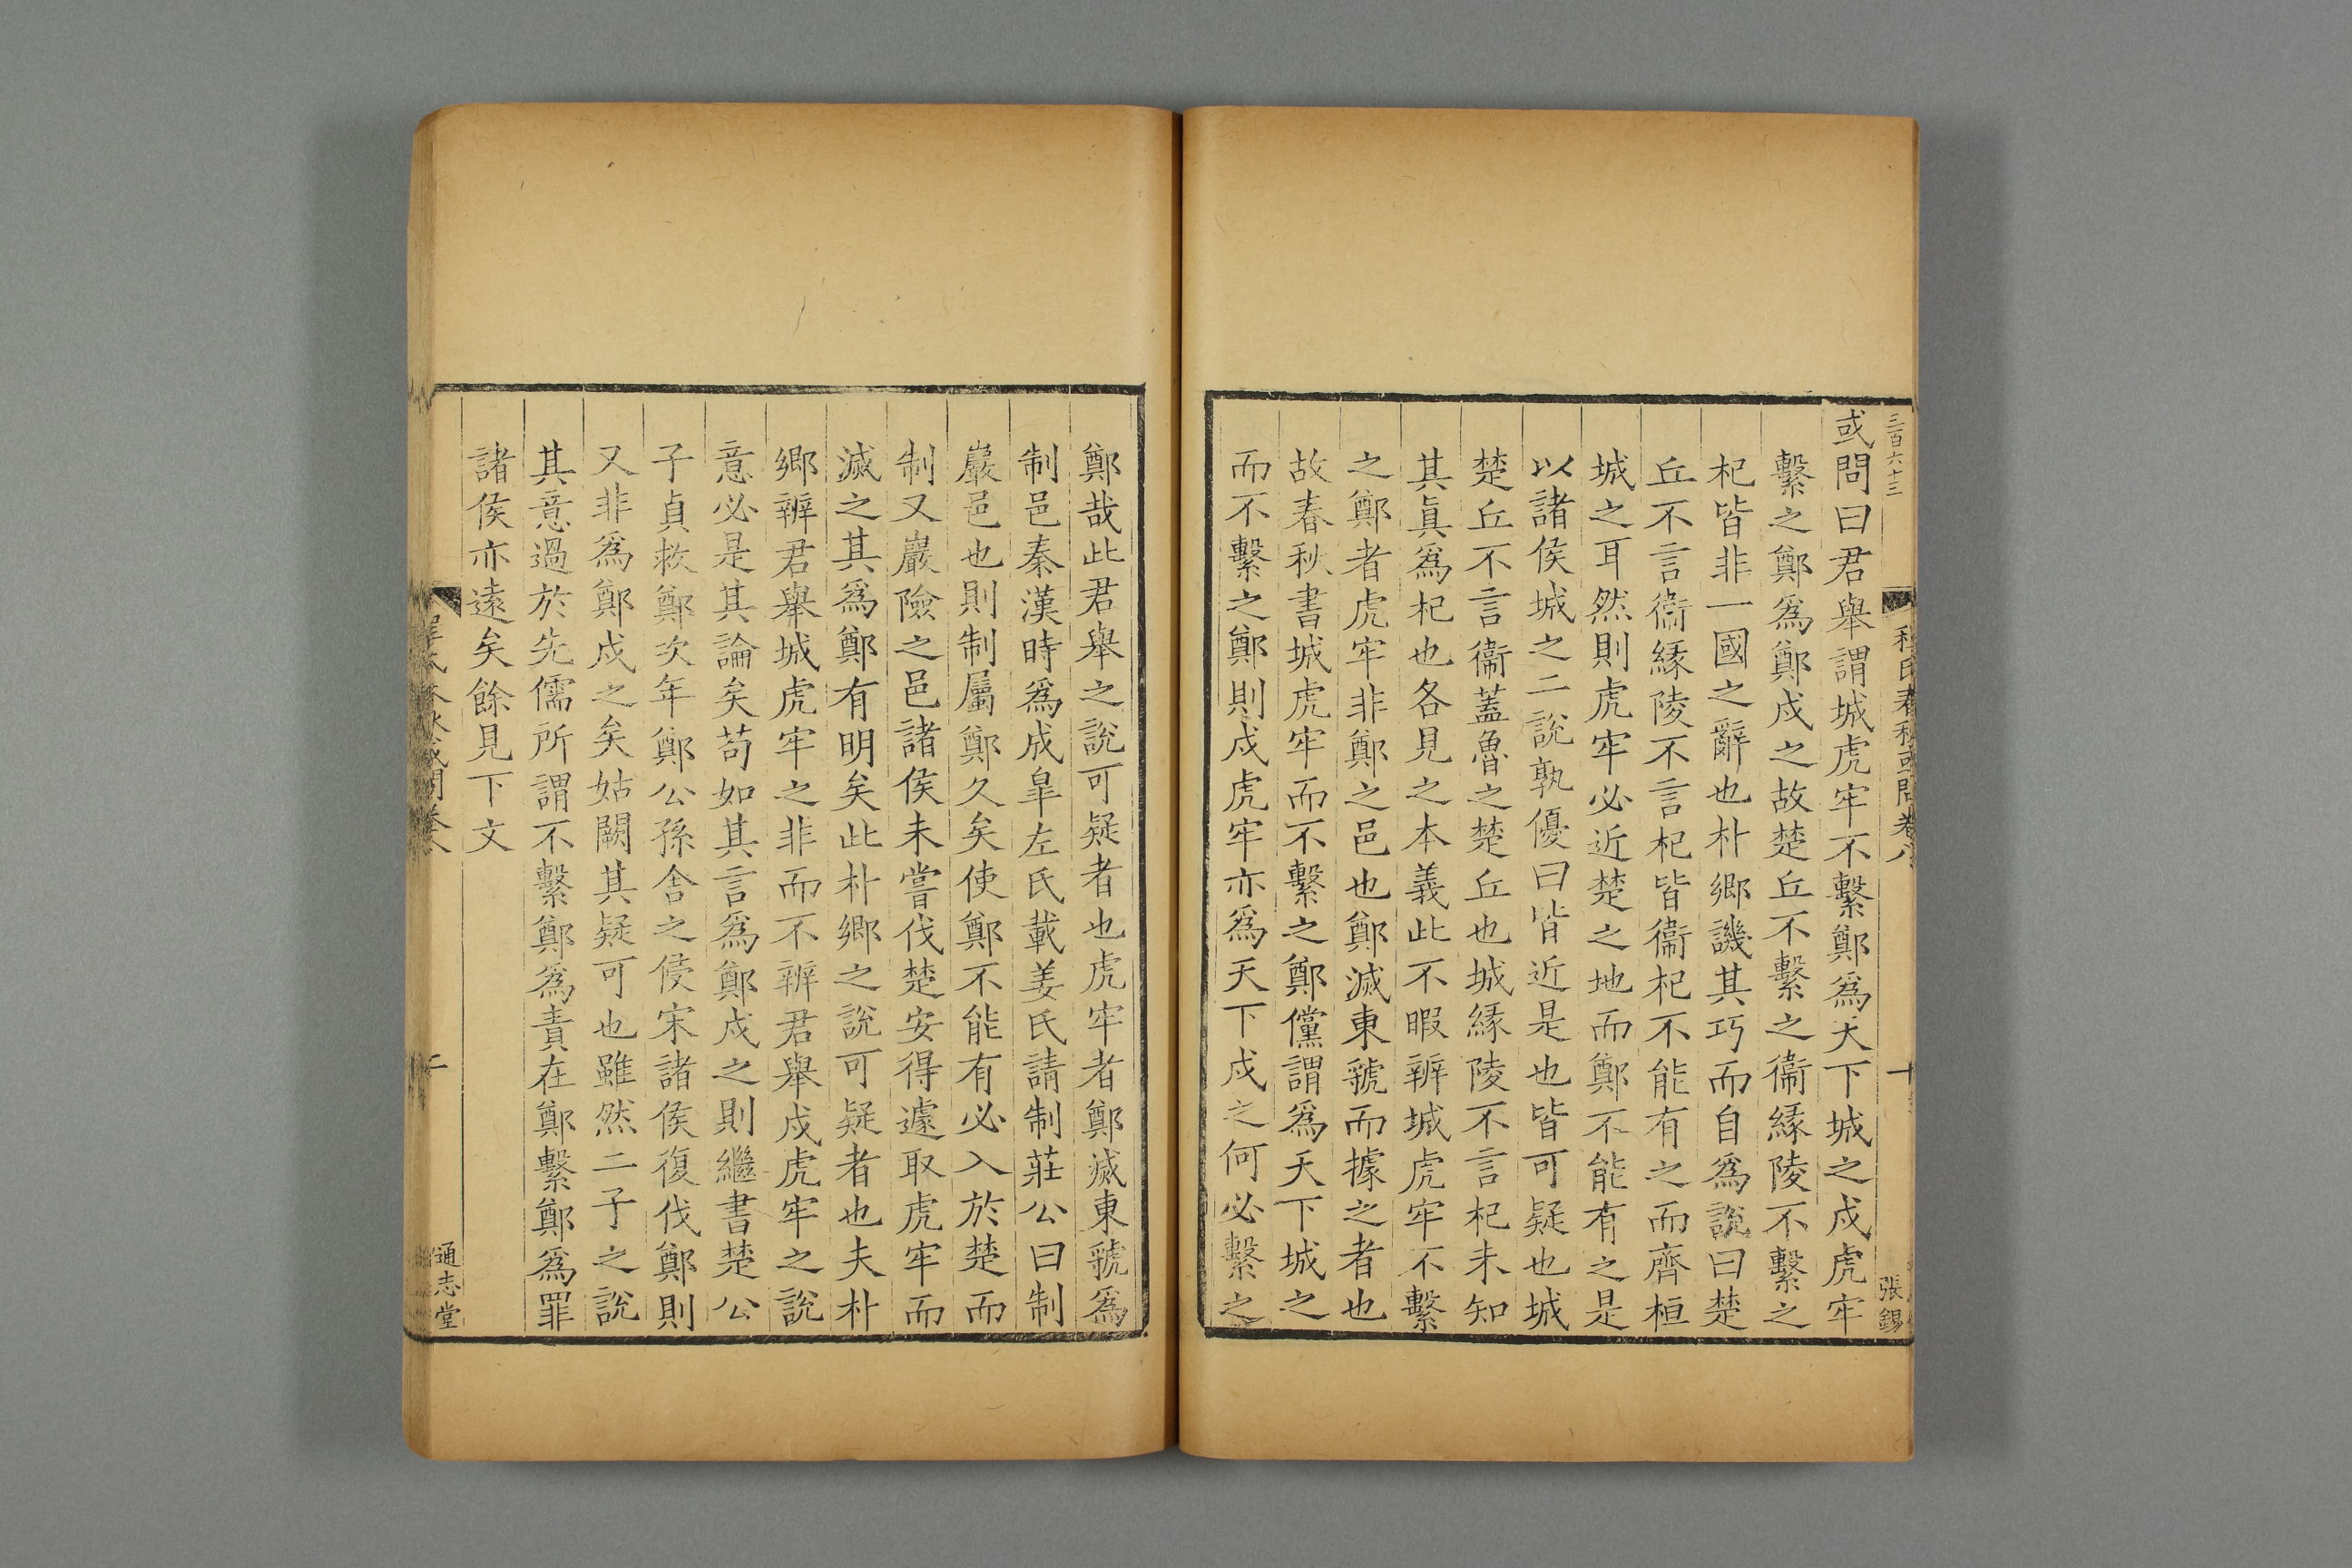 三百六十三
程氏春秋或問卷八
十
張錫
或問曰君舉謂城虎牢不繫鄭爲天下城之戍虎牢
繫之鄭爲鄭戍之故楚丘不繫之衞緣陵不繫之
杞皆非一國之辭也朴鄉譏其巧而自爲說曰楚
丘不言衞緣陵不言杞皆衞杞不能有之而齊桓
城之耳然則虎牢必近楚之地而鄭不能有之是
以諸侯城之二說孰優曰皆近是也皆可疑也城
楚丘不言衞蓋魯之楚丘也城緣陵不言杞未知
其眞爲杞也各見之本義此不暇辨城虎牢不繫
之鄭者虎牢非鄭之邑也鄭滅東虢而據之者也
故春秋書城虎牢而不繫之鄭儻謂爲天下城之
而不繫之鄭則戍虎牢亦爲天下戍之何必繫之
鄭哉此君舉之說可疑者也虎牢者鄭滅東虢爲
制邑秦漢時爲成皐左氏載姜氏請制莊公曰制
巖邑也則制屬鄭久矣使鄭不能有必入於楚而
制又巖險之邑諸侯未嘗伐楚安得遽取虎牢而
滅之其爲鄭有明矣此朴鄉之說可疑者也夫朴
鄉辨君舉城虎牢之非而不辨君舉戍虎牢之說
意必是其論矣苟如其言爲鄭戍之則繼書楚公
子貞救鄭次年鄭公孫舍之侵宋諸侯復伐鄭則
又非爲鄭戍之矣姑闕其疑可也雖然二子之說
其意過於先儒所謂不繫鄭爲責在鄭繫鄭爲罪
諸侯亦遠矣餘見下文
通志堂